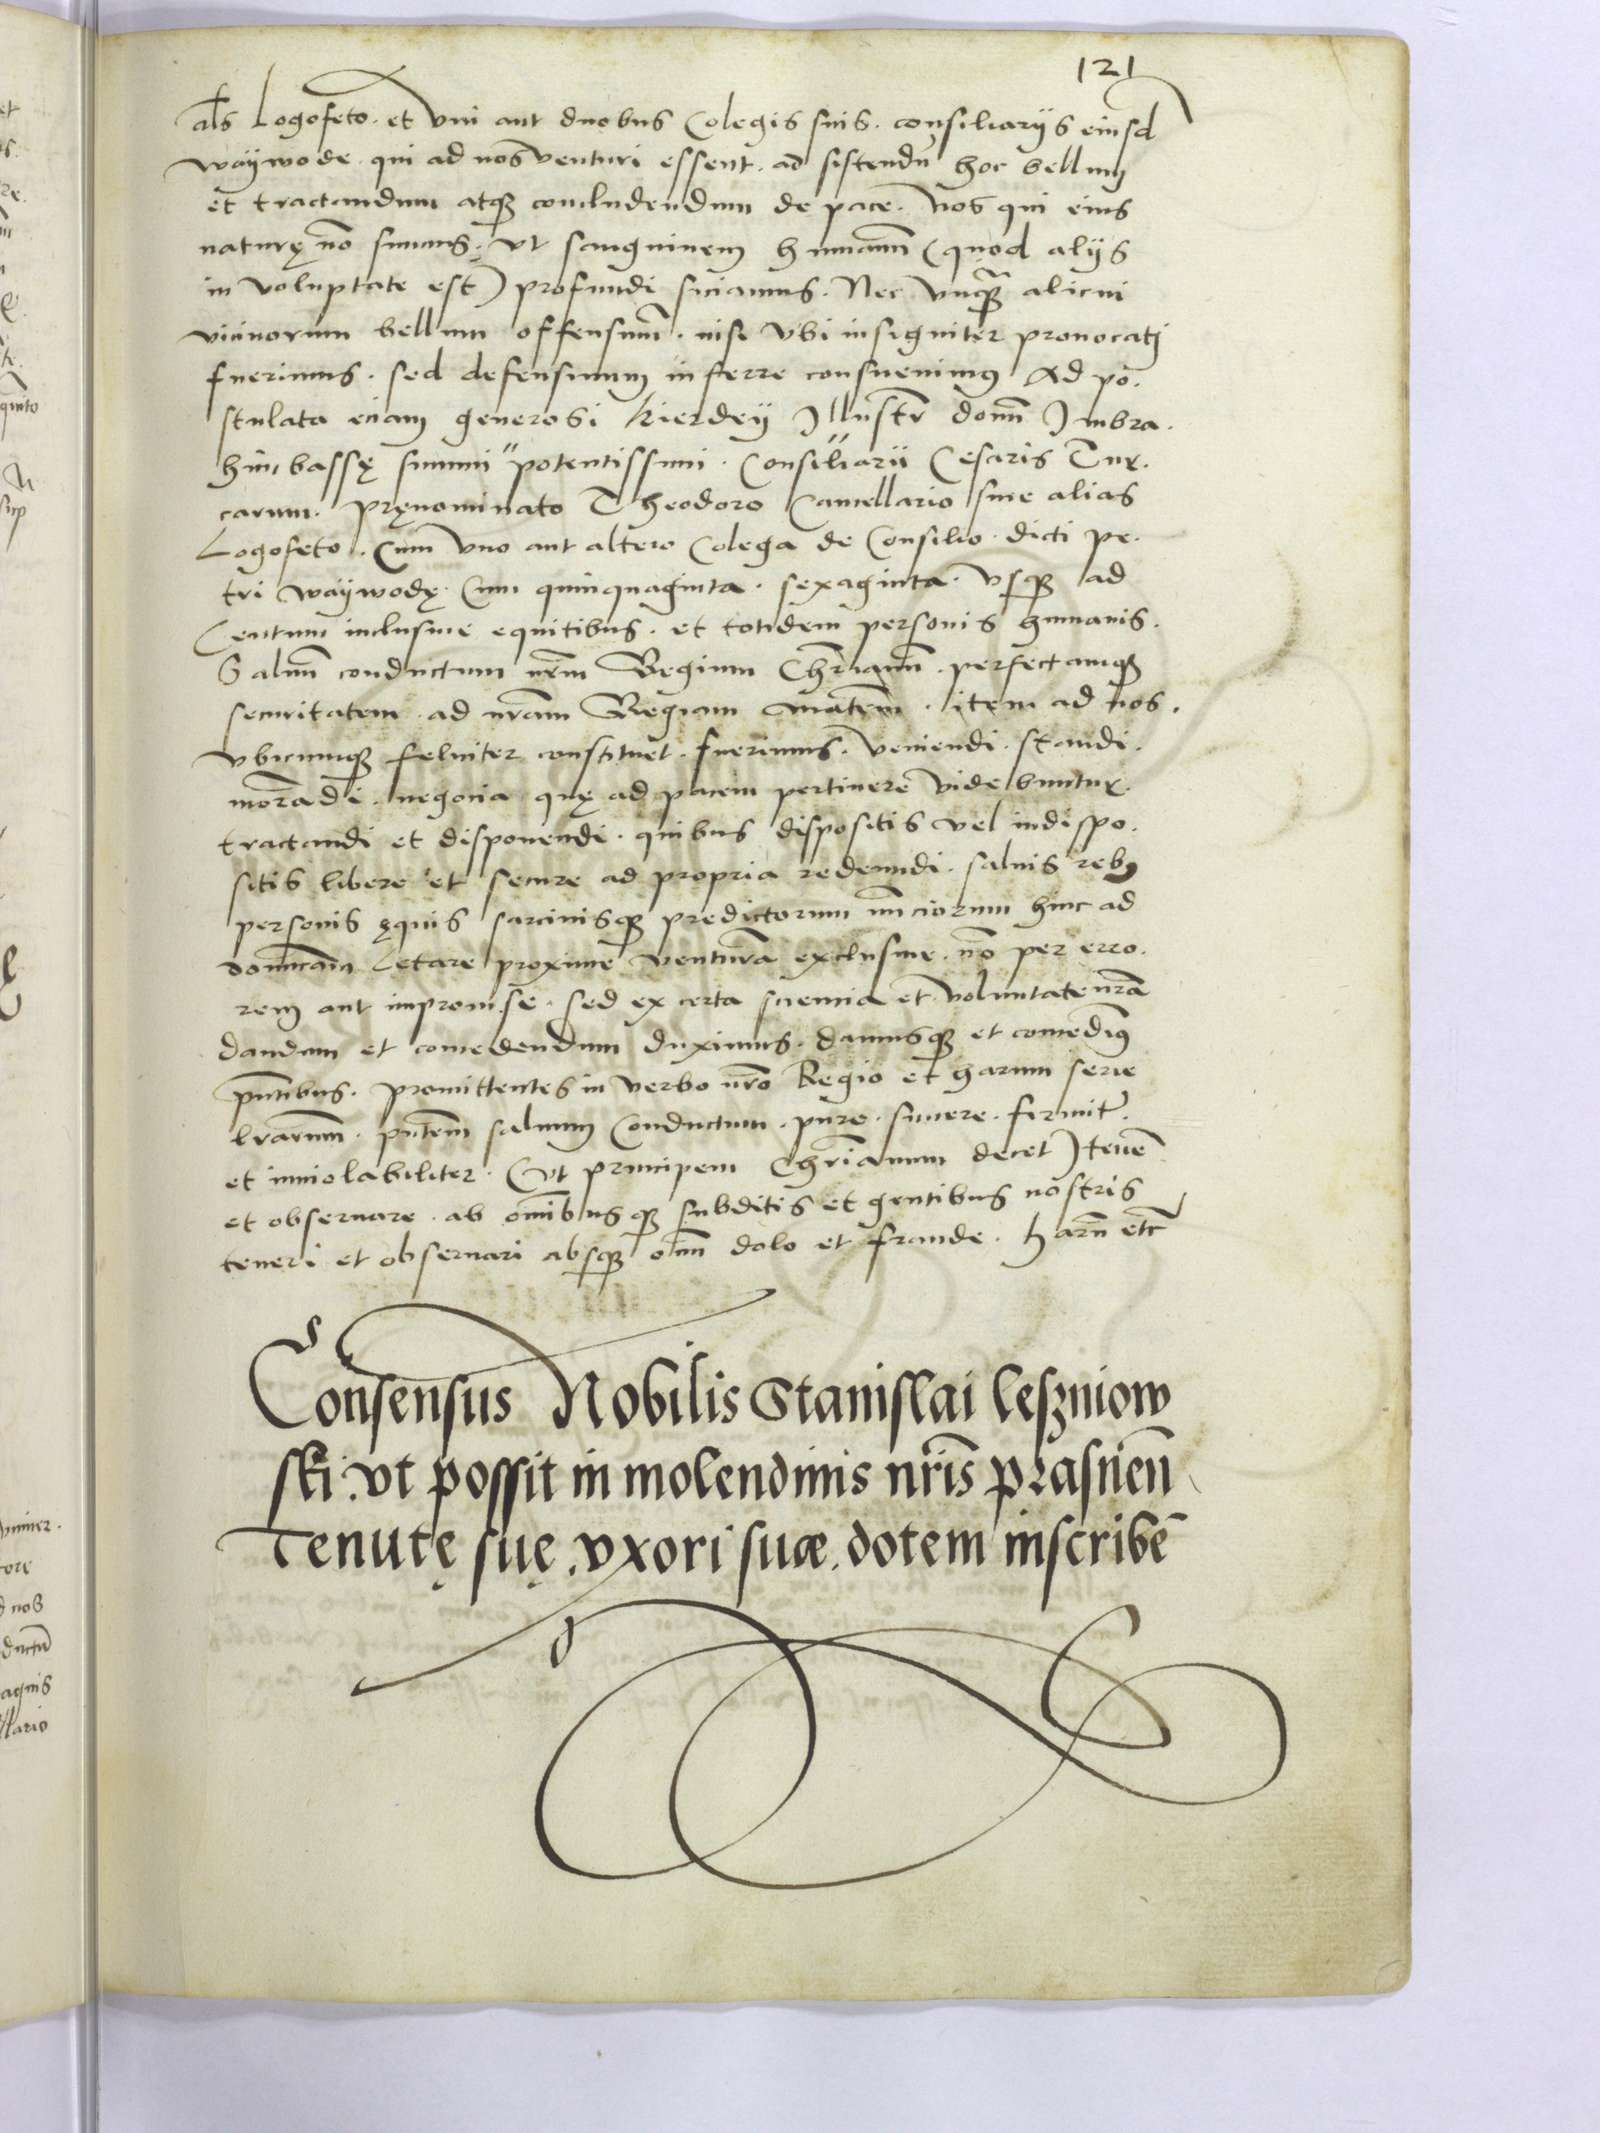 121
als Logofeto. et vni aut duobus Colegis suis. consiliarijs eiusd
waÿwode. qui ad nos venturi essent. ad sistendũ hoc bellum
et tractandum atqꝫ concludendum de pace. Nos qui eius
naturę nõ sumus. vt sanguinem humanũ (quod alijs
in voluptate est) profundi siciamus. Nec vnqꝫ alicui
vicinorum bellum offensiuũ. nisi vbi insigniter prouocatj
fuerimus. sed defensiuum inferre consueuimꝰ Ad po.
stulata eciam generosi kierdeÿ Illustr̃ domĩ Imbra.
him bassę summi potentissimi. Consiliarii Cesaris Tur.
carum. pręnominato Theodoro Cancellario siue alias
Logofeto. Cum vno aut altero Colega de Consilio. dicti pe.
tri waÿwodę. Cum quinquaginta. sexaginta. vsqꝫ ad
Centum inclusiue equitibus. et totidem personis humanis.
Saluũ conductum nr̃m Regium Chr̃ianũ. perfectamqꝫ
securitatem. ad nr̃am Regiam Mat̃em. item ad nos.
vbicumqꝫ feliciter constitut. fuerimus. veniendi. standi.
morãdi. negocia quę ad pacem pertinere videbuntur.
tractandi et disponendi. quibus dispositis vel indispo.
sitis libere et secure ad propria redeundi. saluis rebꝰ
personis ęquis sarcinisqꝫ predictorum nũciorum hinc ad
domĩcam Letare proxime venturã exclusiue. nõ per erro.
rem aut improuise. sed ex certa sciencia et voluntate nr̃a
dandam et concedendum duximus. damusqꝫ et concedimꝰ
pñtibus. promittentes in verbo nr̃o Regio et harum serie
lr̃arum. pñtem saluum Conductum. pure. sincere. firmit̃.
et inuiolabiliter. (vt principem Chr̃ianum decet) tenẽ
et obseruare. ab om̃ibusqꝫ subditis et gentibus nostris
teneri et obseruari absqꝫ om̃i dolo et fraude. harũ etc̃
Consensus Nobilis Stanislai leszniow
ski. vt possit in molendinis nr̃is prasnen̄
Tenutę suę. vxori suæ. dotem inscribẽ